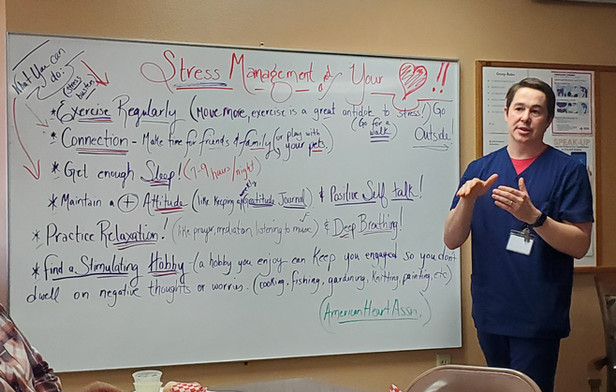 What You can do:
(stress busters)
Stress Management & Your ♥!!
* Exercise Regularly (Move more, exercise is a great antidote to stress!) Go Outside →
(Go for a walk)
* Connection - Make time for friends & family (or play with your pets.)
* Get enough Sleep! (7-9 hours/night)
* Maintain a ⊕ Attitude (like keeping a gratitude Journal) & Positive Self talk!
* Practice Relaxation! (like prayer, mediation, listening to music) & Deep Breathing!
* Find a Stimulating Hobby - (a hobby you enjoy can keep you engaged so you don't
dwell on negative thoughts or worries. (cooking, fishing, gardining, Knitting, painting, etc)
(American Heart Assn.)
SPEAK-UP